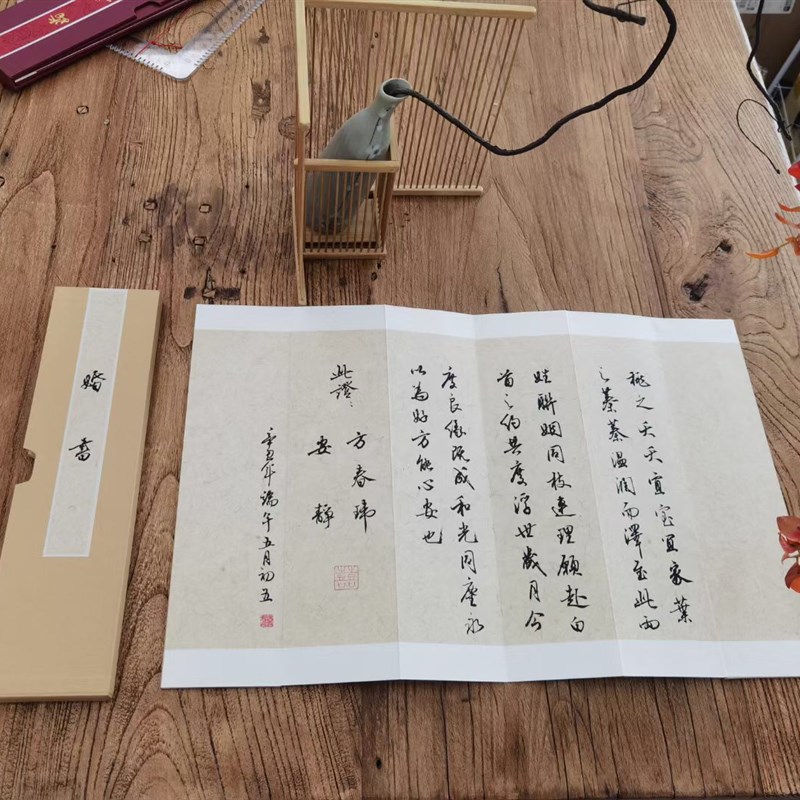 桃之夭夭宜室宜家葉
之蓁蓁温潤而澤至此兩
姓聯姻同枝連理願赴白
首之約共度浮世歲月今
度良缘既成和光同塵永
以為好方能心安也
此證:
方春瑋
安靜
辛丑年端午五月初五
婚書